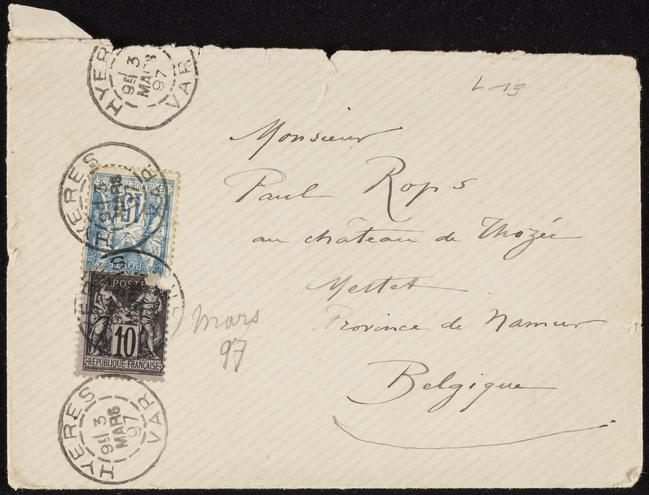 HYERES VAR
9E/ 3
MARS
97
L 19
Monsieur
Paul Rops
au château de Thozée
Mettet
Province de Namur
Belgique
HYERES
MARS
15
POSTE
POSTE
10
REPUBLIQUE FRANÇAISE
mars
97
HYERES VAR
9E/ 3
MARS
97